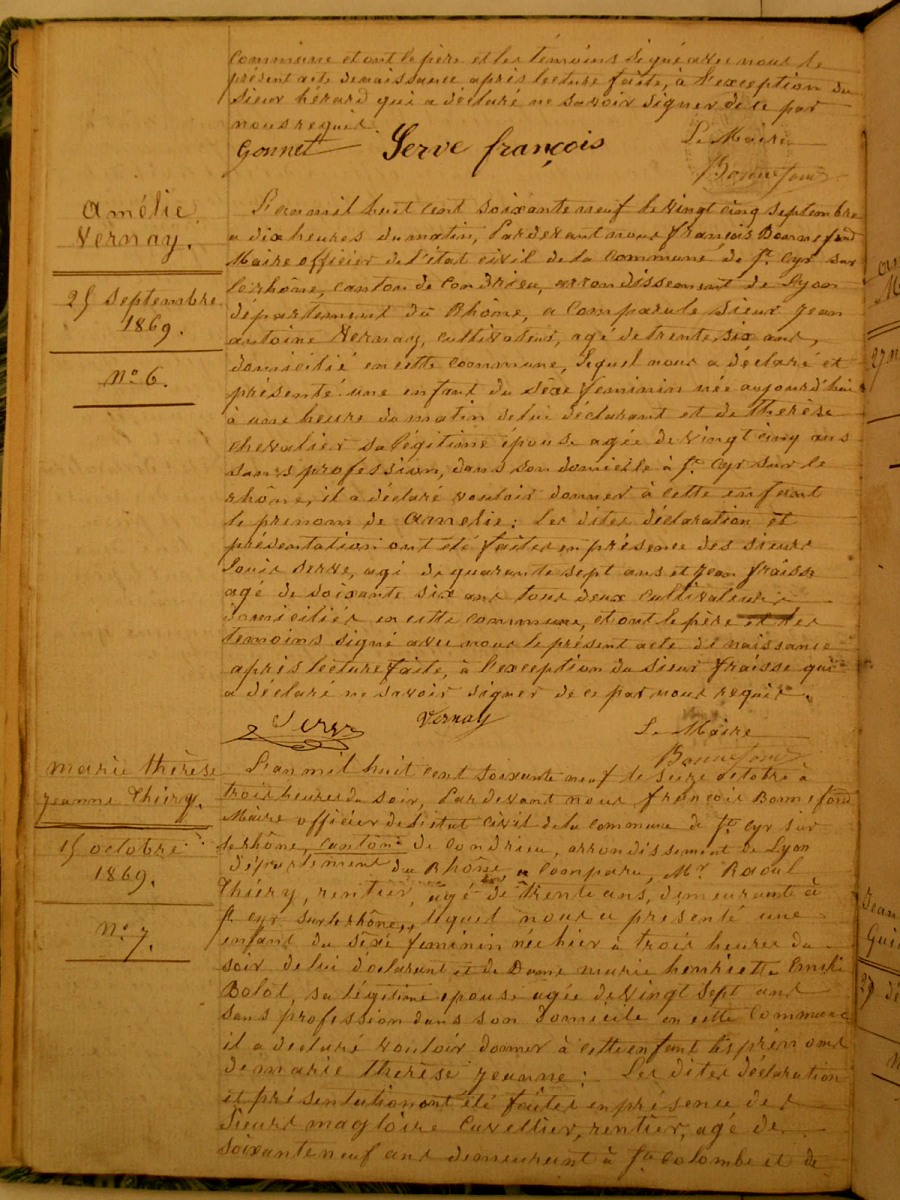 commune et ont le père et les témoins signé avec nous le
présent acte de naissance après lecture faite, à l'exception du
sieur hérard qui a déclaré ne savoir signer de ce par
nous requis.
Gonnet Serve françois Le Maire
Bonnefond
Amélie
Vernay.
25 septembre
1869.
No 6.
L'an mil huit cent soixante neuf le vingt cinq septembre
a dix heures du matin, Pardevant nous françois Bonnefond
Maire officier de l'état civil de la commune de St Cyr sur
le rhône, canton de Condrieu, arrondissement de Lyon
département du Rhône, a comparu le sieur Jean
antoine Vernay, cultivateur, agé de trente six ans,
domicilié en cette commune, lequel nous a déclaré et
présenté une enfant du sèxe feminin née aujourd'hui
à une heure du matin de lui déclarant et de therèse
chevalier sa légitime épouse agée de vingt cinq ans
sans profession, dans son domicile à St Cyr sur le
rhône, il a déclaré vouloir donner à cette enfant
le prénom de Amelie: Les dites déclaration et
présentation ont été faites en présence des sieurs
Louis Serve, agé de quarante sept ans et Jean fraisse
agé de soixante six ans tous deux cultivateurs
domiciliés en cette commune, et ont le père et les
temoins signé avec nous le présent acte de naissance
après lecture faite, à l'exception du sieur fraisse qui
a déclaré ne savoir signer de ce par nous requis.
Serve Vernay Le Maire
Bonnefond
marie thérèse
jeanne Thiery.
15 octobre
1869.
No 7.
L'an mil huit cent soixante neuf le seize octobre a
trois heures du soir, Pardevant nous françois Bonnefond
Maire officier de l'état civil de la commune de St Cyr sur
le rhône, canton de Condrieu, arrondissement de Lyon
département du Rhône a comparu, Mr Raoul
Thiery, rentier, agé de trente ans, demeurant à
St cyr sur le rhône, lequel nous a présenté une
enfant du sèxe feminin née hier à trois heures du
soir de lui déclarant et de Dame marie henriette
Bolot, sa légitime épouse agée de vingt sept ans
sans profession dans son domicile en cette commune
il a déclaré vouloir donner à cette enfant les prénoms
de marie therèse jeanne: Les dites déclaration
et présentation ont été faites en présence des
sieurs magloire Cuvellier, rentier, agé de
soixante neuf ans demeurant à Ste Colombe et de